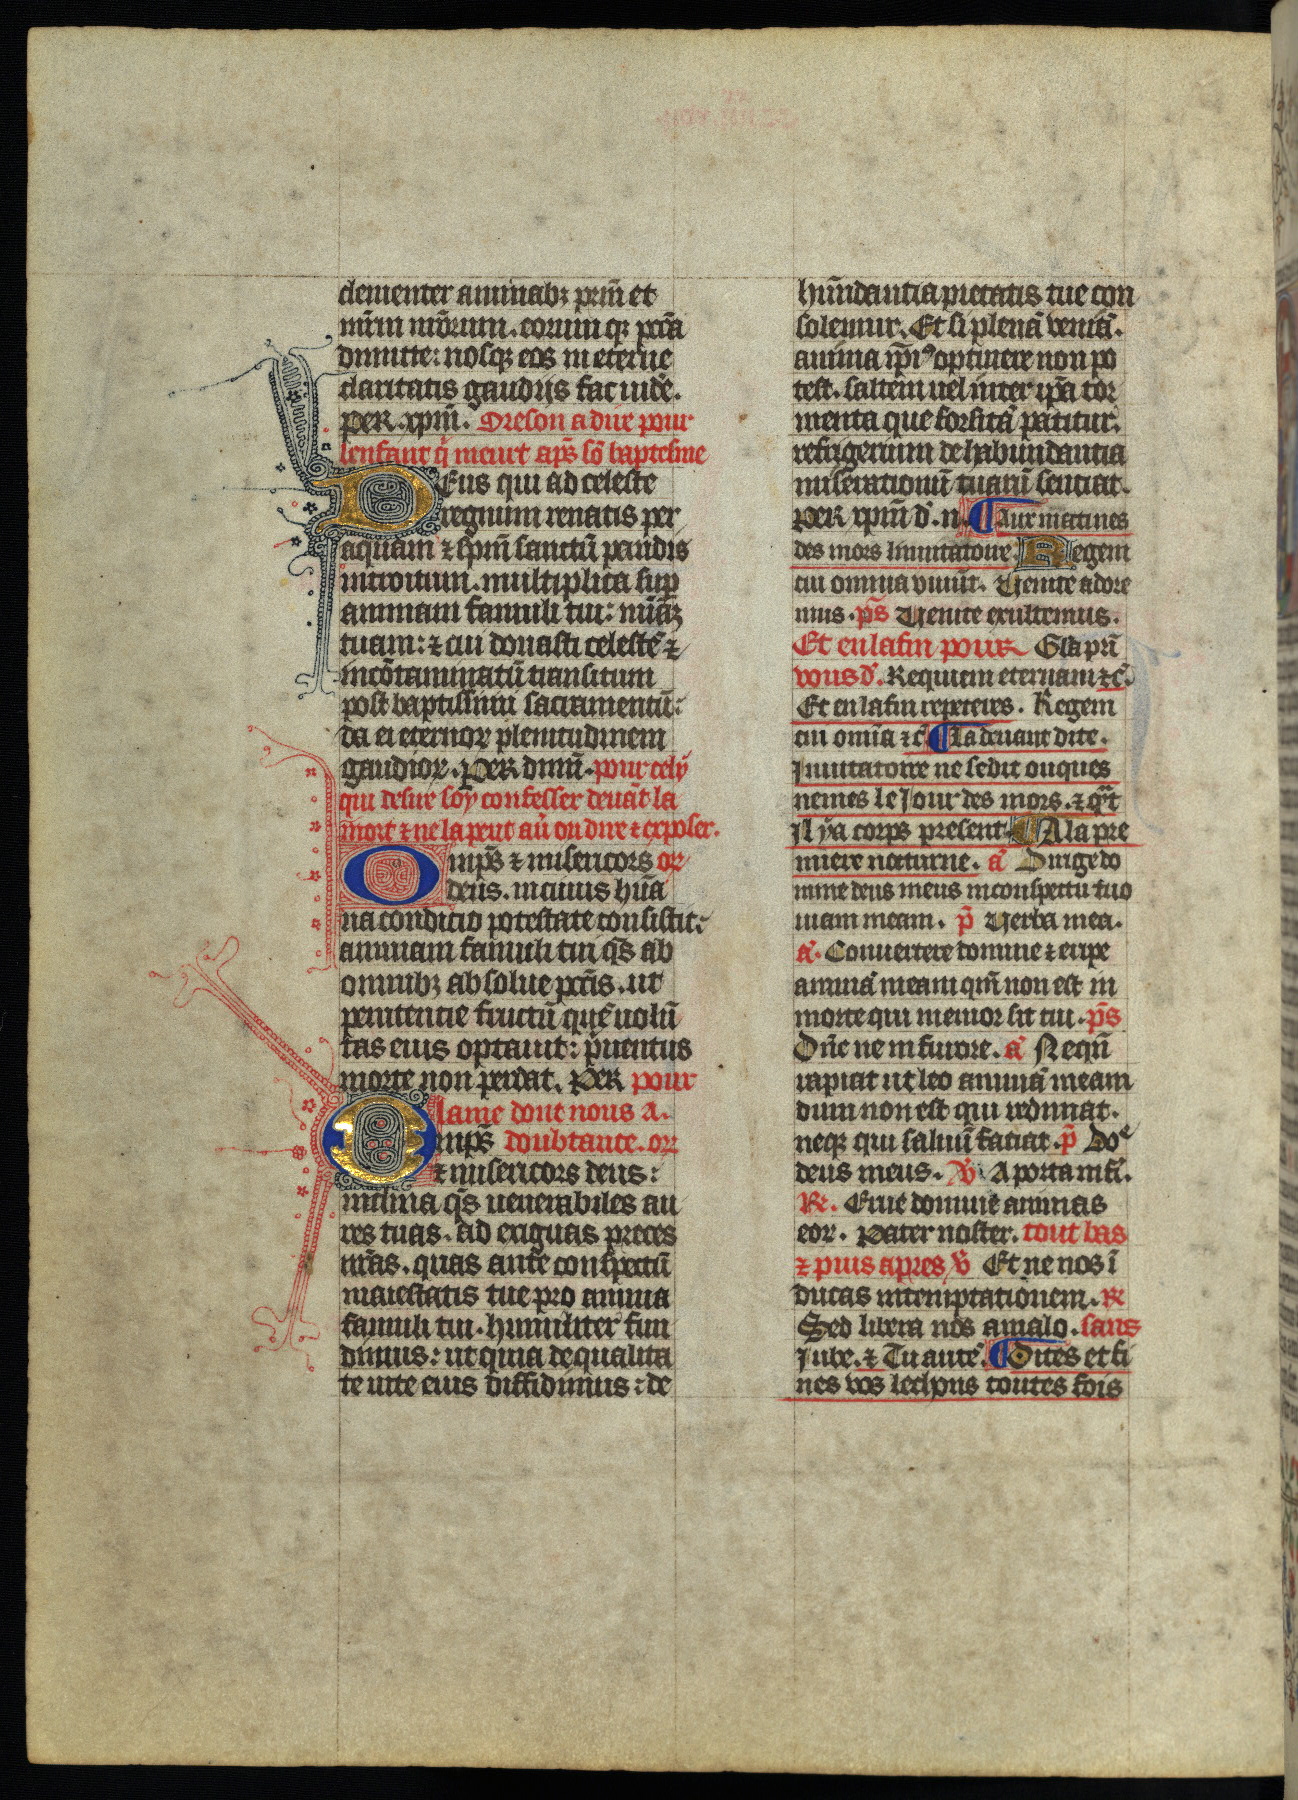 clementer animabꝫ prim̄ et
mr̄m mr̄orum. eorum qꝫ pc̄ca
dimitte: nosqꝫ eos in eterne
claritatis gaudijs fac uide͛.
Per. xpm̄. Oreson a dire pour
lenfant q̄ meurt aps̄ sō baptesme
Deus qui ad celeste
regnum renatis per
aquam ⁊ spm̄ sanctū pandis
introitum. multiplica sup
animam famuli tui: mīaꝫ
tuam: ⁊ cui donasti celestē ⁊
incōtaminatū transitum
post baptissimi sacramentū:
da ei eternoꝝ plenitudinem
gaudioꝝ. Per dnm̄. pour cely
qui desire soy confesser deuāt la
mort ⁊ ne la peut au͛ ou dire ⁊ exposer.
Omps̄ ⁊ misericors or
deus. in cuius hūa
na condicio potestate consistit:
animam famuli tui qs̄ ab
omnibꝫ absolue pc̄cis. ut
penitencie fructū quē uolū
tas eius optauit: p̄uentus
morte non perdat. Per pour
lame dont nous a.
Omps̄ doubtance. or
⁊ misericors deus:
inclina qs̄ uenerabiles au
res tuas. ad exiguas preces
nr̄as. quas ante conspectū
maiestatis tue pro anima
famuli tui. humiliter fun
dimus: ut quia de qualita
te uite eius diffidimus: de
hūndantia pietatis tue con
solemur. Et si plenā veniā.
anima ip̄iꝰ optinere non po
test. saltem uel inter ip̄a tor
menta que forsitā patitur.
refrigerium de habundantia
miserationū tuarū sentiat.
Per xpm̄ d. n. Aux matines
des mors Inuitatoire. Regem
cui omnia viuūt. Venite adore
mus. ps̄ Venite exultemus.
Et en lafin pour Gla pri͛
vous d͛. Requiem eternam ⁊c̄.
Et en lafin repeteres. Regem
cui om̄ia ⁊c̄ La deuant dite.
Inuitatoire ne sedit ouques
nemes le Jour des mors. ⁊ q͛t
Il ya corps present. A la pre
miere nocturne. a͛ Dirige do
mine deus meus in conspectu tuo
uiam meam. p̄ Verba mea.
a͛. Conuertere domine ⁊ eripe
animā meam qm̄ non est in
morte qui memor sit tui. ps̄
Dn̄e ne in furore. a͛ Nequ͛
rapiat ut leo animā meam
dum non est qui redimat.
neqꝫ qui saluū faciat. p̄ Doe
deus meus. ℣ A porta infi͛.
℟. Erue domine animas
eoꝝ. Pater noster. tout bas
⁊ puis apres ℣ Et ne nos ī
ducas in temptationem. ℟
Sed libera nos a malo. sans
Jube. ⁊ Tu autē. Dites et fi
nes vos lechons toutes fois